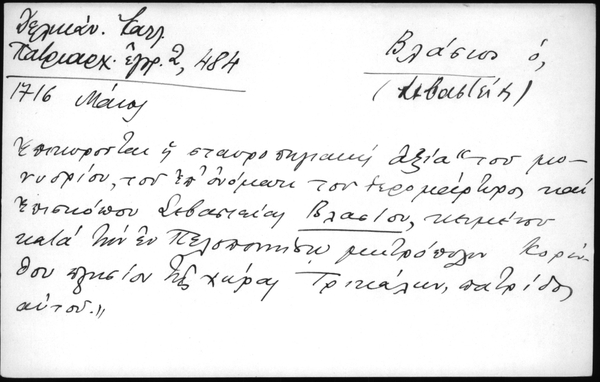 Δελικάν. Κατλ.
Πατριαρχ. ἔγγρ. 2, 484
Βλάσιος ὁ,
(Σεβαστείας)
1716 Μάιος
Ἐπικυροῦται ἡ σταυροπηγιακὴ ἀξία "τοῦ μο-
νυδρίου, τοῦ ἐπ' ὀνόματι τοῦ ἱερομάρτυρος καὶ
ἐπισκόπου Σεβαστείας Βλασίου, κειμένου
κατὰ τὴν ἐν Πελοποννήσῳ μητρόπολιν Κορίν-
θου πλησίον τῆς χώρας Τρικάλων, πατρίδος
αὐτοῦ.»